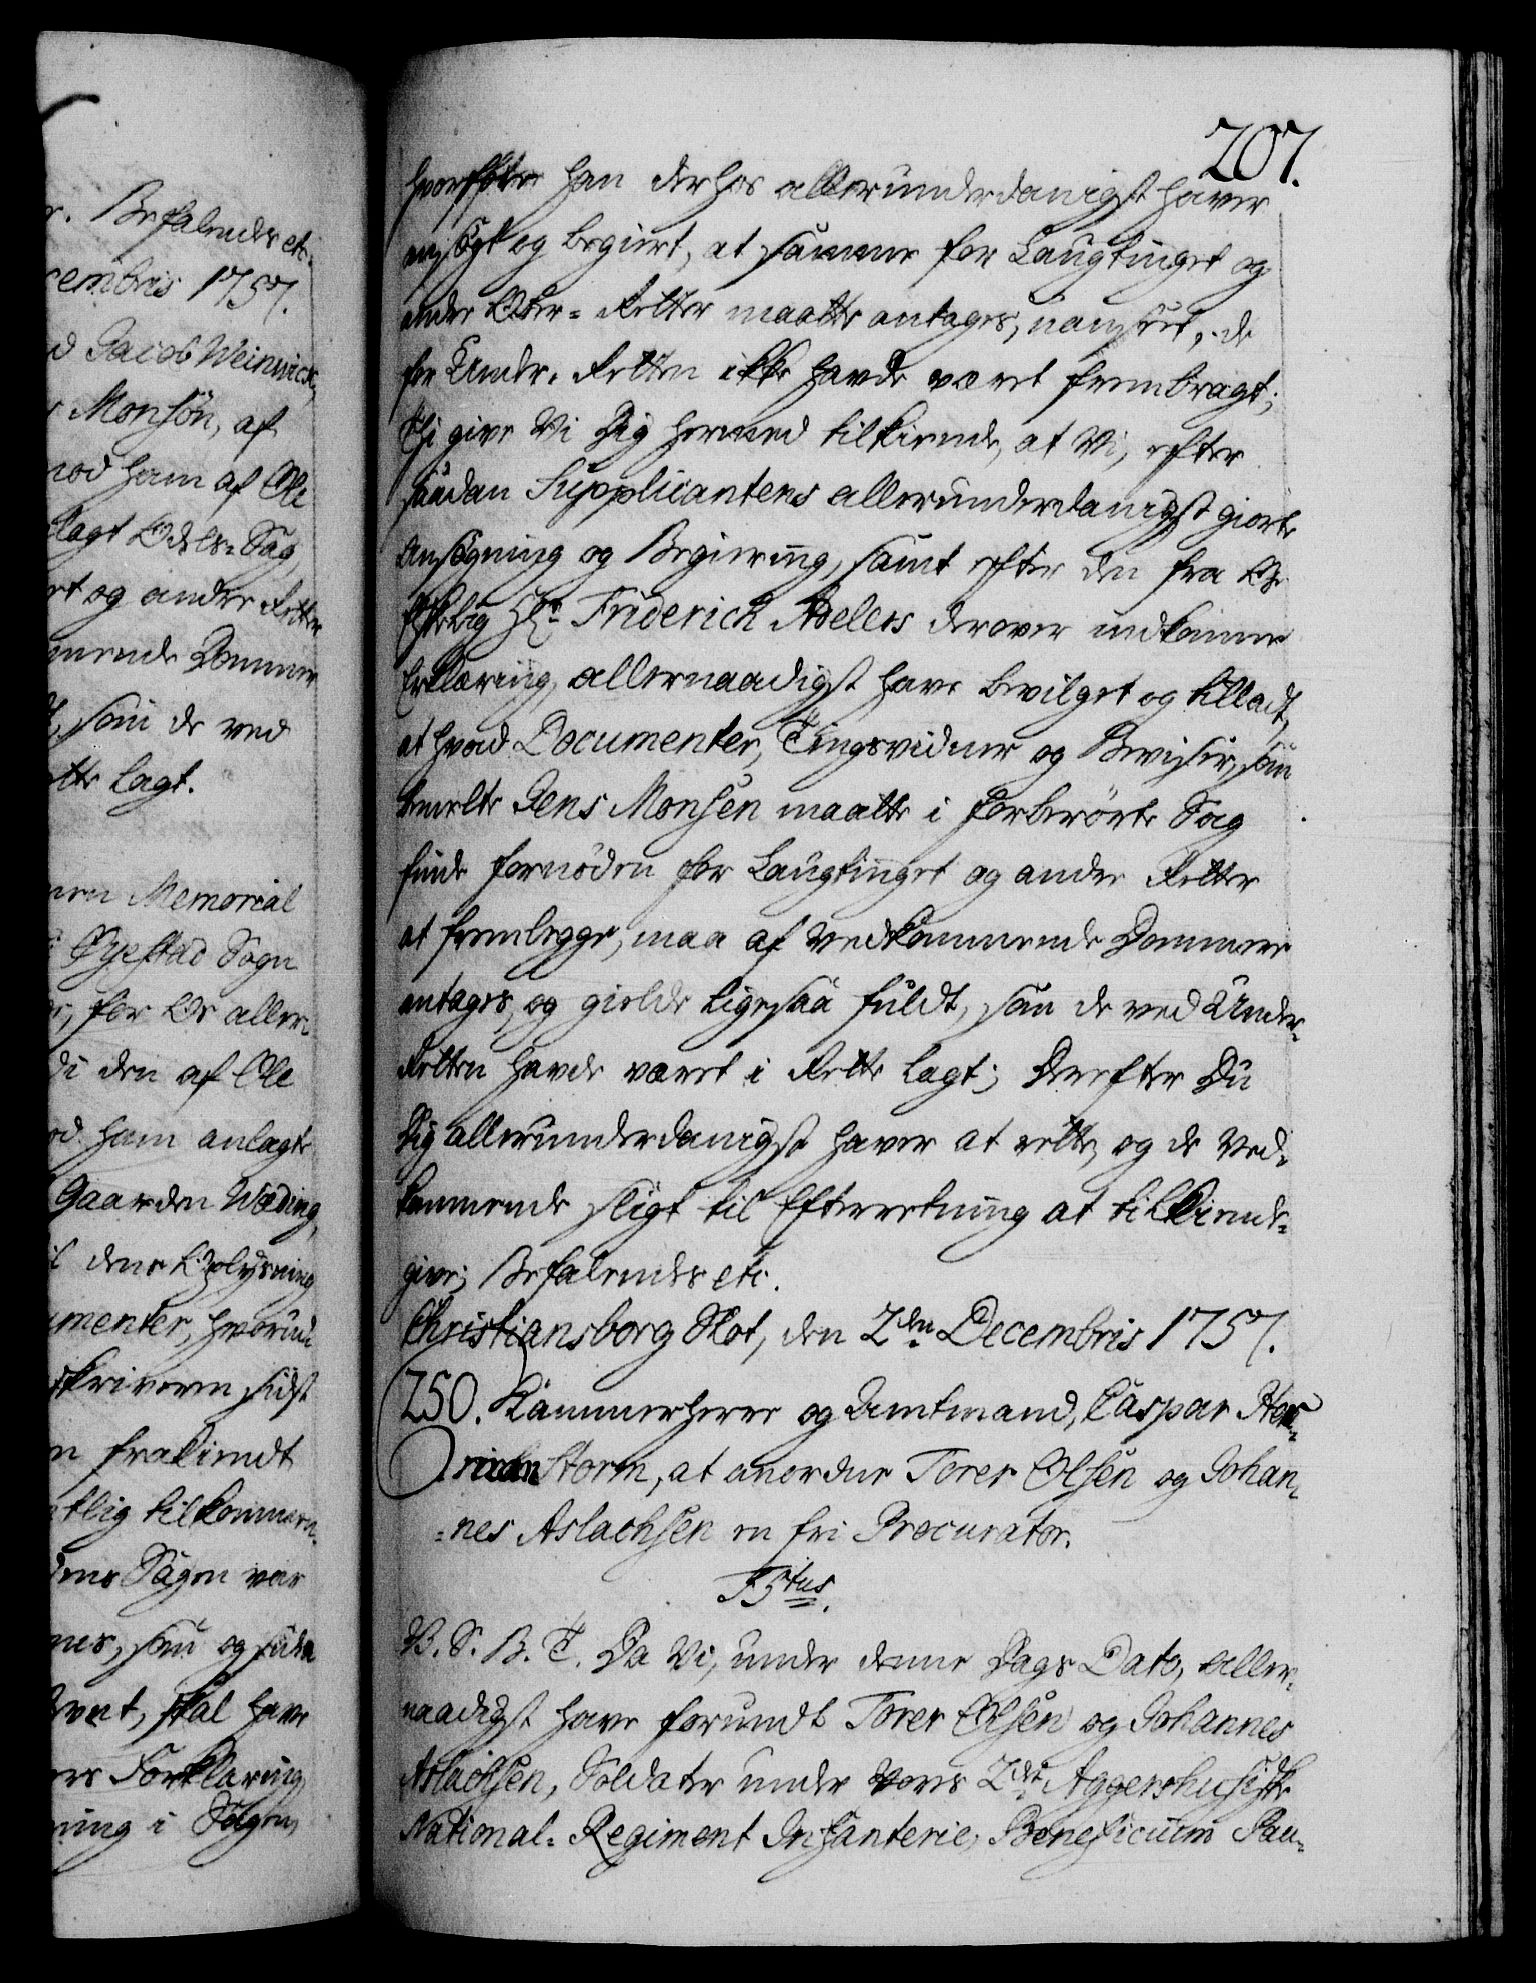 r. Befalendes etc.
cembris 1757.
d Jacob Weinwich,
Monsön, af
mod ham af Ole
lagt Odels-Sag
rt og andre Retter
mende Dommer
som de ved
rette lagt.
nen Memorial
Øyestad Sogn
for Os aller-
di den af Ole
od ham anlagte
Gaarden Wæding,
dens Oplysning
umenter, hvorum
skriveren sidst
n frakiendt
tlig tilkommen-
dens Sagen var
nes, som og siden
ordnet, skal have
ers Forklaring
ning i Sagen,
207.
hvorfore han derhos allerunderdanigst haver
ansøgt og begiert, at samme for Laugtinget og
andre Over-Retter maatte antages, uanseet, de
for Under-Retten ikke havde været frembragt;
Thi give Vi Dig hermed tilkiende, at Vi, efter
saadan Supplicantens allerunderdanigst giorte
Ansøgning og Begiering, samt efter den fra Os
Elskelig Hr. Friderich Adelers derover indkomne
Erklæring, allernaadigst have bevilget og tilladt,
at hvad Documenter, Tingsvidner og Beviiser, som
bemelte Jens Monsen maatte i forberørte Sag
finde fornøden for Laugtinget og andre Retter
at fremlegge, maa af Vedkommende Dommere
antages, og gielde ligesaa fuldt, som de ved Under-
Retten havde været i Rette lagt; Derefter Du
Dig allerunderdanigst haver at rette, og de Ved-
kommende sligt til Efterretning at tilkiende-
give; Befalendes etc.
Christiansborg Slot, den 2den Decembris 1757.
250. Kammerherre og Amtmand, Caspar Her-
man Storm, at anordne Torer Olsen og Johan-
=nes Aslachsen en fri Procurator.
F5tus.
V. S. B. T. Da Vi, under denne Dags Dato, aller-
naadigst have forundt Torer Olsen og Johannes
Aslachsen, Soldater under Vores 2det Aggershusiske
National-Regiment Infanterie, Beneficium Pau-